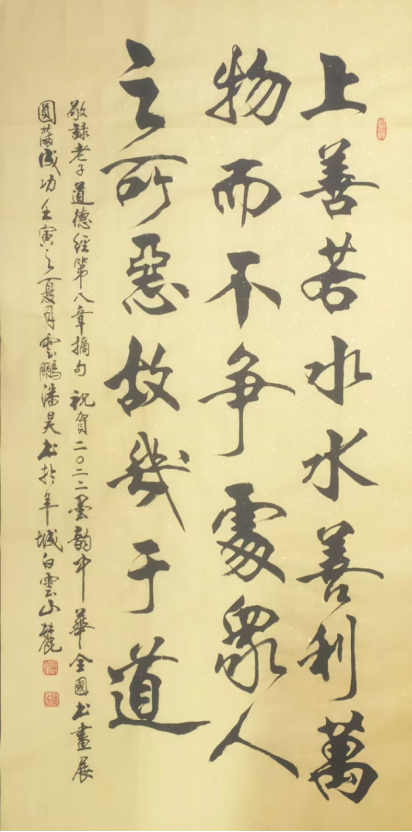 上善若水水善利萬
物而不争處衆人
之所惡故幾于道
敬録老子道德經第八章摘句祝賀二〇二二墨韵中華全國书畫展
圓滿成功壬寅之夏月雲鵬潘昊书於羊城白雲山麓